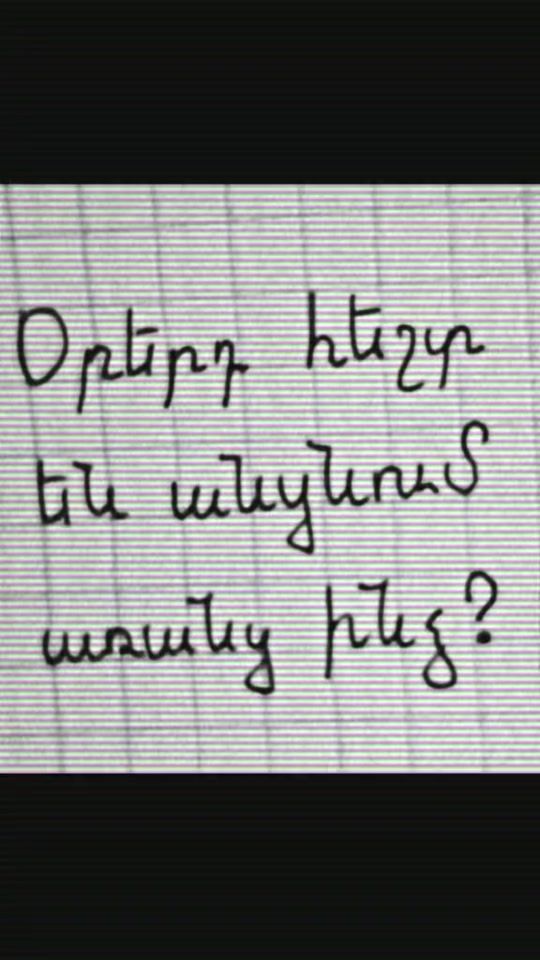 Օրերդ հեշտ
են անցնում
առանց ինձ?